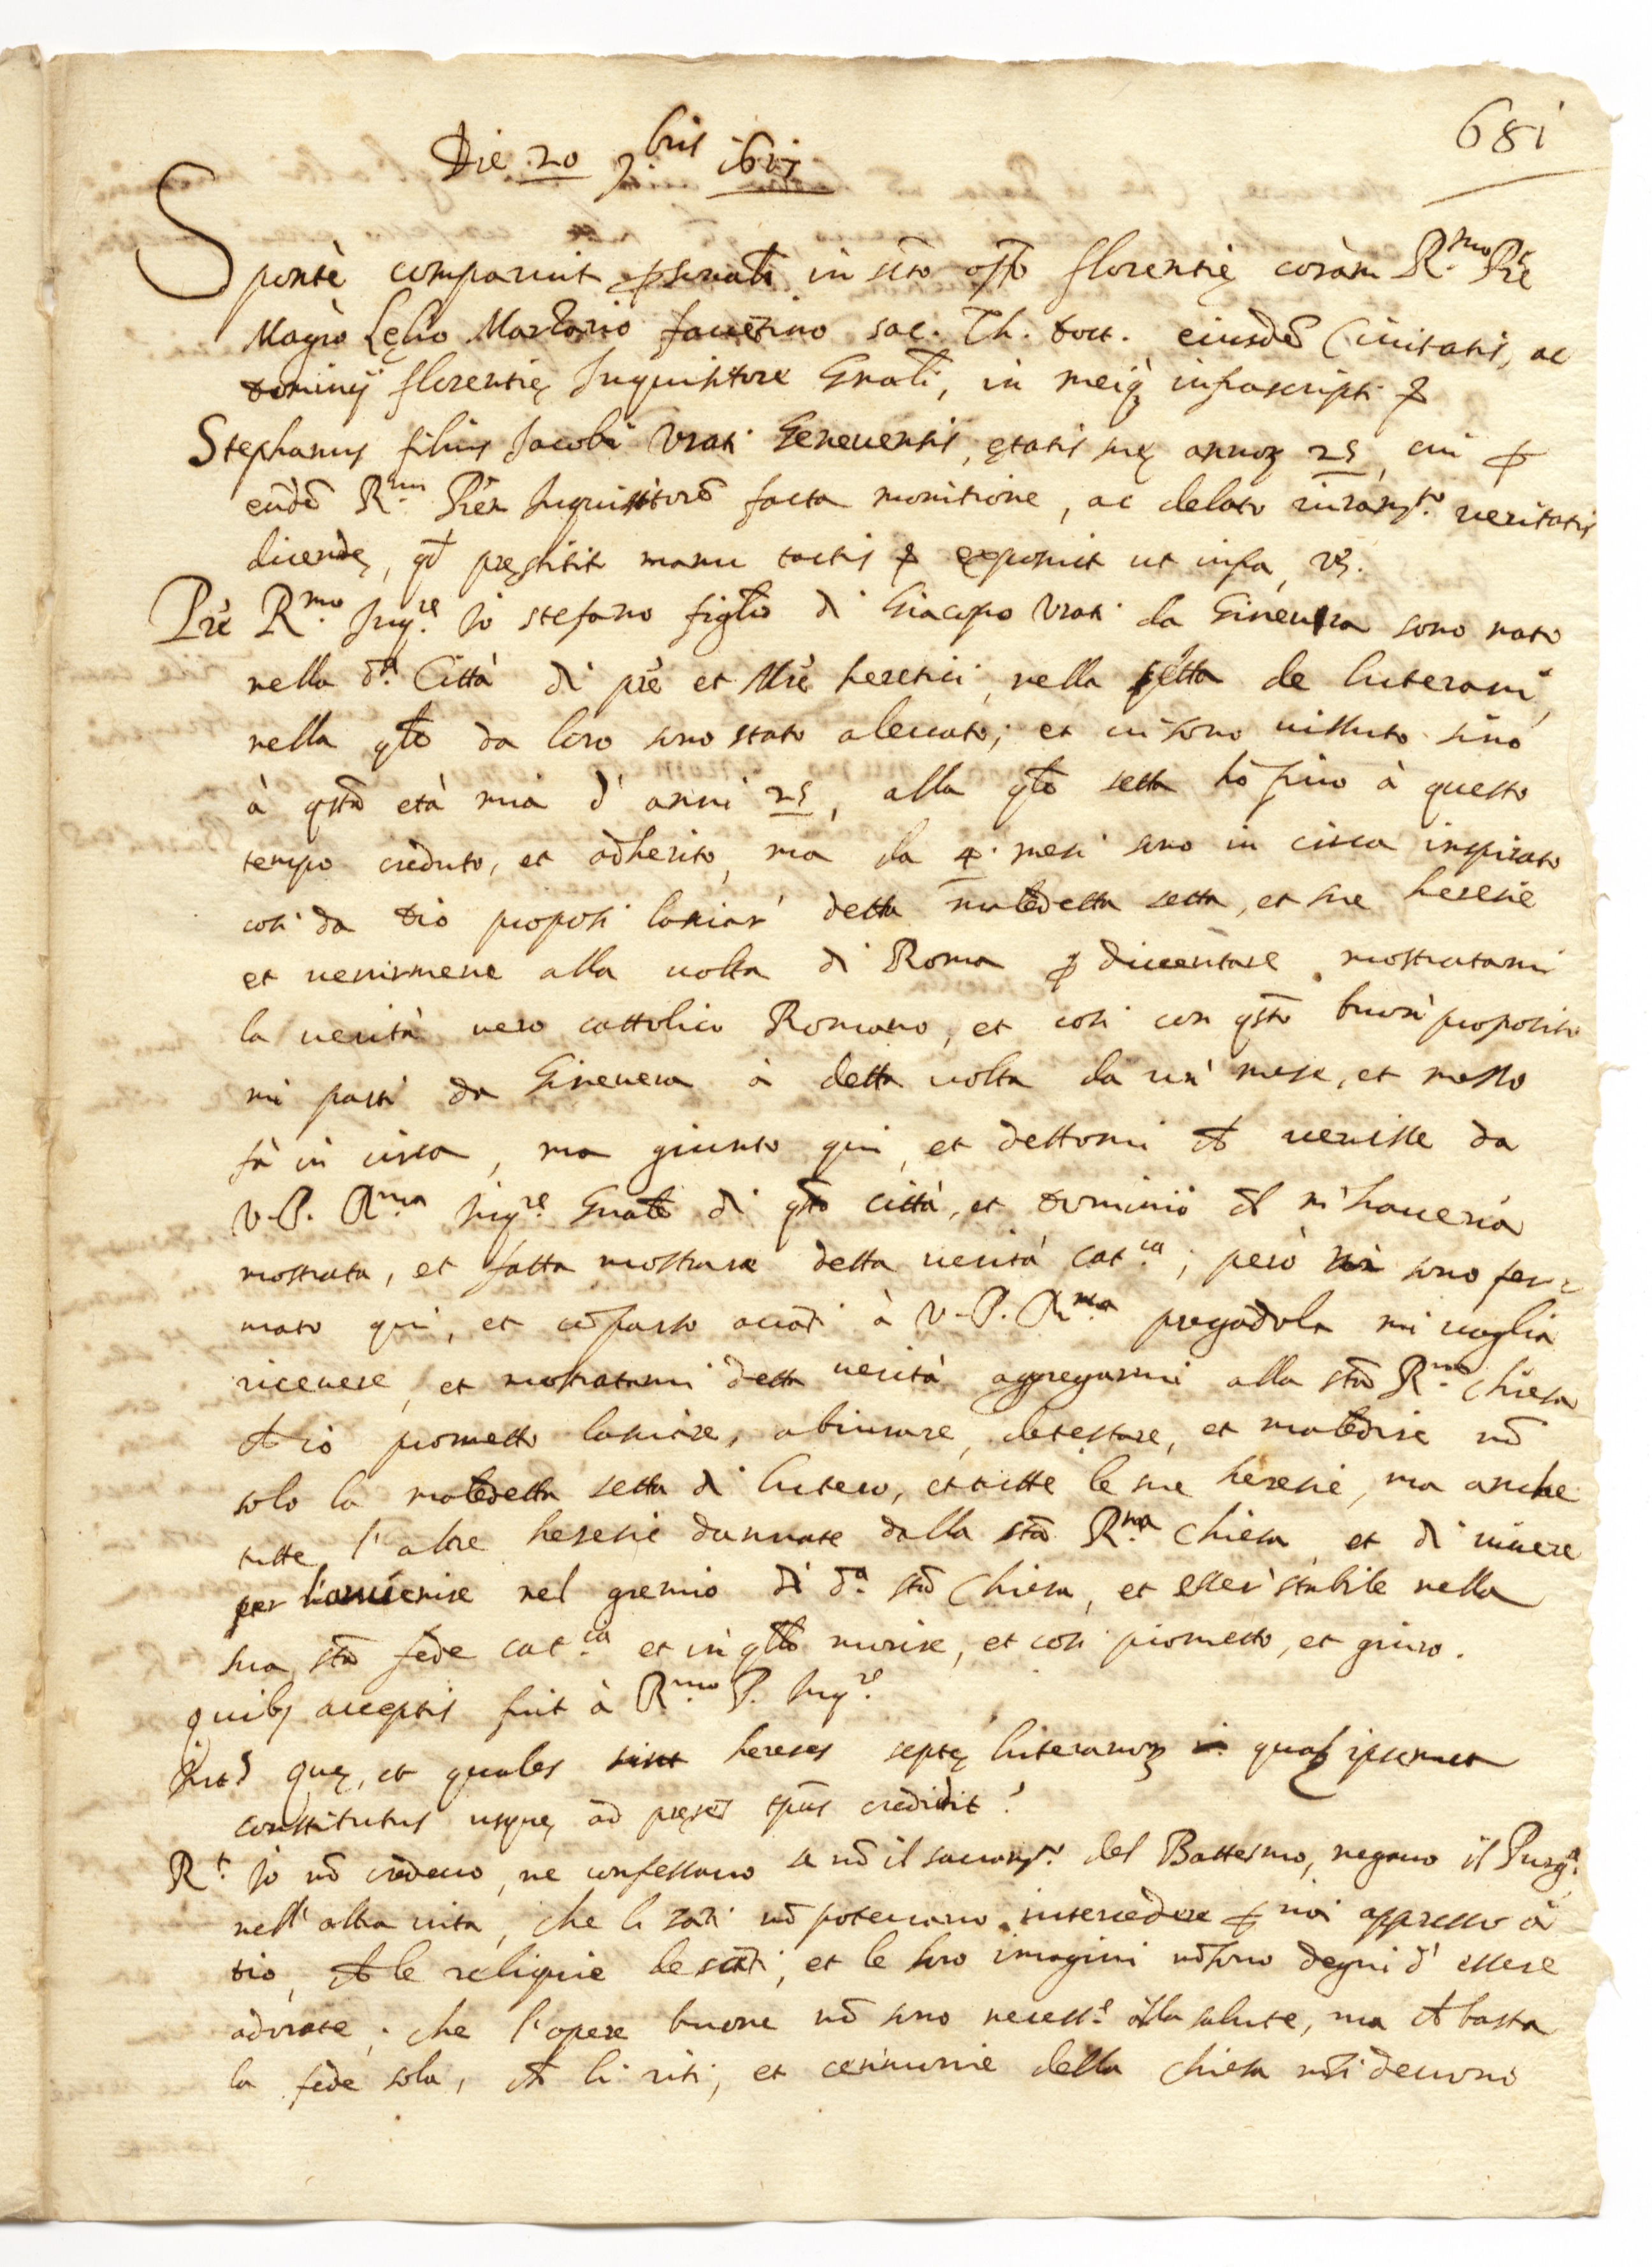 681
Die 20 7.bris 1617
Spontè comparuit psonalr in scto offo florentię coràm R.mo Pre
Magro Lęlio Marzario fauetino sac. Th. doct. eiusdē Ciuitatis, ac
dominij florentię Inquisitore Gnali, in meiq infrascripti &
Stephanus filius Jacobi Vrati Geneuensis, ętatis suę annoz 25, cui p
eūdē R.um Prēm Inquisitorē facta monitione, ac delato iuramto. ueritatis
dicendę, qd pręstitit manu tactis & exposuit ut infra, vz.
Prē R.mo Inqre. Io stefano figlio di Giacopo Vrati da Gineura sono nato
nella da. Città di prē et Mrē heretici, nella setta de luterani,
nella qle da loro sono stato aleuato, et ui sono uissuto sino
à qsta età mia d' anni 25, alla qle setta hò fino à questo
tempo creduto, et adherito, ma da 4. mesi sono in circa inspirato
cosi da dio proposi lasciar' detta maledetta setta, et sue heresie
et uenirmene alla uolta di Roma p diuentare mostratami
la uerità uero cattolico Romano, et cosi con qsto buon' proposito
mi parti da Gineura à detta uolta da un' mese, et mezzo
fà in circa, ma giunto qui, et dettomi ch uenisse da
V. P. R.ma Inqre. Gnale di qsta città, et dominio ch m' haueria
mostrata, et fatta mostrare detta uerità catca.; però mi sono fer-
mato qui, et cōparso auāti à V. P. R.ma pregādola mi uoglia
riceuere, et mostratami detta uerità aggregarmi alla sta R.na Chiesa
ch io prometto lasciare, abiurare, detestare, et maledire nō
solo la maledetta setta di lutero, et tutte le sue heresie, ma anche
tutte l' altre heresie dannate dalla sta R.na Chiesa et di uiuere
per l'auuenire nel gremio di da. sta Chiesa, et esser' stabile nella
sua sta fede catca. et in qlla morire, et cosi prometto, et giuro.
Quibs acceptis fuit à R.mo P. Inqre.
Ints Quę, et quales sint hereses septę luteranoz quas ipsemet
constitutus usque ad pręsēs tpus credidit?
Rt. Io nō credeuo, ne confessauo se nō il sacramto. del Battesmo, negauo il Purgo.
nell' altra uita, che li sāti nō poteuano intercedere p noi appresso à
dio, ch le reliquie de sāti, et le loro imagini nō sono degni d' essere
adorate, che l' opere buone nō sono necesse. alla salute, ma ch basta
la fede sola, ch li riti, et cerimonie della Chiesa nō si deuono